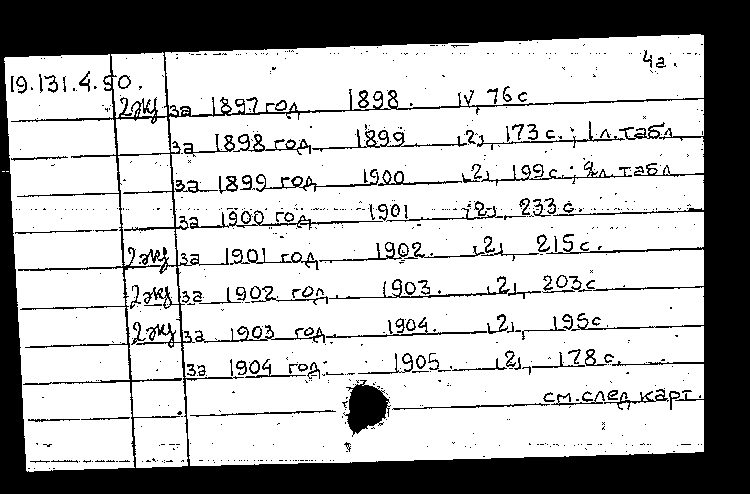 4а.
19.131.4.50.
2экз за 1897 год 1898. IV, 76 с
за 1898 год 1899 [2], 173 с.; 1 л. табл.
за 1899 год 1900 [2], 199 с.; 2 л. табл
за 1900 год 1901 [2], 233 с.
2экз за 1901 год 1902. [2], 215 с.
2экз за 1902 год. 1903. [2], 203 с
2экз за 1903 год. 1904. [2], 195 с
за 1904 год. 1905. [2], 178 с.
см. след. карт.